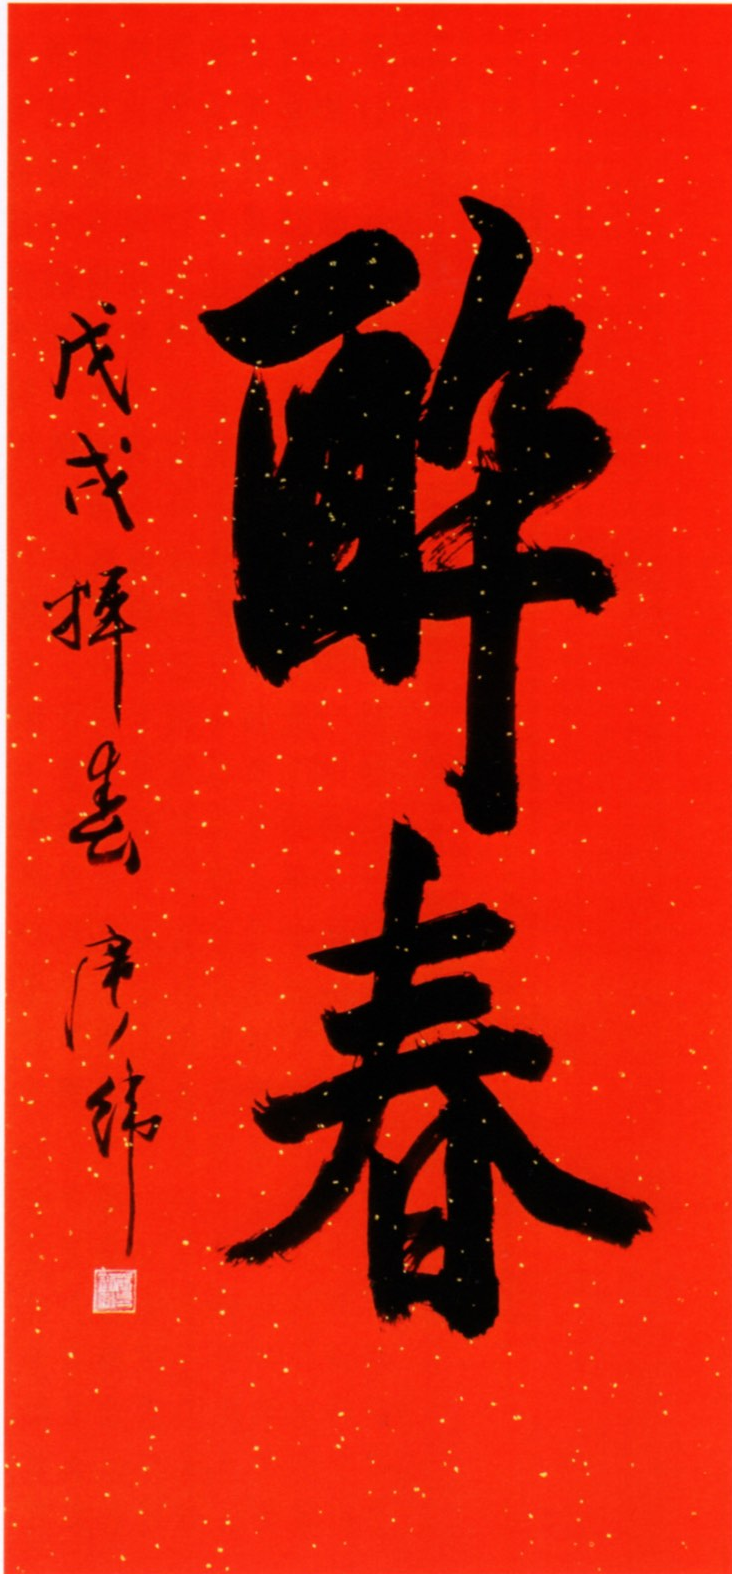 醉春
戊戌挥春